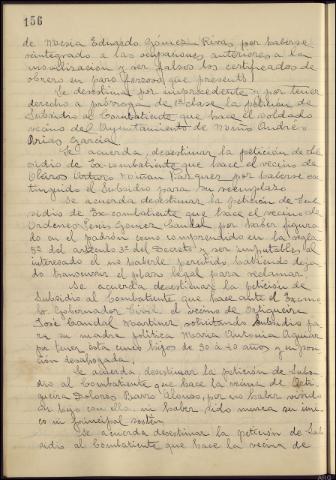 156
de Moeia Eduardo Gómez Rivas por haberse
reintegrado a las ocupaciones anteriores a la
movilización y ser falsos los certificados de
obrero en paro forzoso que presentó
Se desestimar por improcedente y por tener
derecho a prórroga de 1ª clase la petición de
Subsidio al Combatiente que hace el soldado
vecino del Ayuntamiento de Andrés
Arias García
Se acuerda desestimar la petición de Sub
sidio de Ex-combatiente que hace el vecino de
Vázquez por haberse ex
tinguido el Subsidio para su reemplazo
Se acuerda desestimar la petición de Sub
sidio de Ex-combatiente que hace el vecino de
Ordenes Gómez por haber figura
do en el padrón como comprendido en la regla
3ª del artículo 3º del Decreto y ser imputable al
interesado el no haberle percibido habiendo deja
do transcurrir el plazo legal para reclamar
Se acuerda desestimar la petición de
Subsidio al Combatiente que hace ante el Excmo
Sr Gobernador Civil el vecino de Ortigueira
José Candal Martinez solicitando Subsidio pa
ra su madre política María Antonia Aguiar
por tener esta cinco hijos de 30 a 20 años y su posi
ción desahogada
Se acuerda desestimar la petición de Subsi
dio al Combatiente que hace la vecina de Orti
gueira Dolores Barro Alonso, por no haber vivido
su hijo con ella ni haber sido nunca su úni
co ni principal sostén
Se acuerda desestimar la petición de Sub
sidio al Combatiente que hace la vecina de